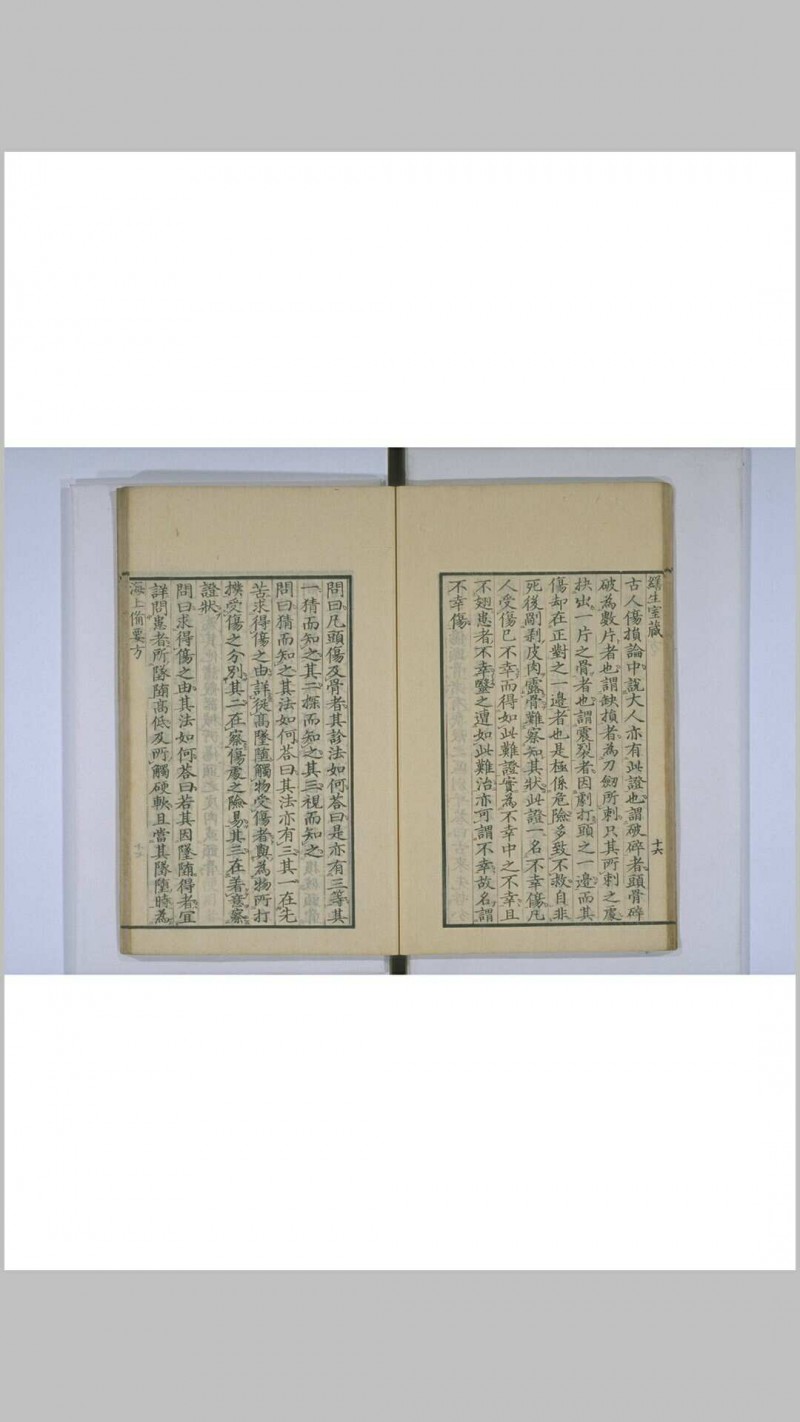 生室藏
古人傷損論中說大人亦有此證也謂破碎者頭骨碎
破為數片者也謂缺損者為刀劒所刺只其所刺之處
抉出一片之骨者也謂震裂者因劇打頭之一邊而其
傷却在正對之一邊者也是極係危險多致不救自非
死後剮剥皮肉露骨難察知其狀此證一名不幸傷凡
人受傷已不幸而得如此難證實為不幸中之不幸且
不翅患者不幸醫之遭如此難治亦可謂不幸故名謂
不幸傷
十六
問曰凡頭傷及骨者其診法如何答曰是亦有三等其
一猜而知之其二探而知之其三視而知之
問曰猜而知之其法如何答曰其法亦有三其一在先
苦求得傷之由詳從高墜隨觸物受傷者與為物所打
撲受傷之分別其二在察傷處之險易其三在著意察
證狀
問曰求得傷之由其法如何答曰若其因墜隨得者宜
詳問患者所墜隨高低及所觸硬軟且當其墜墮時為
海上備要方